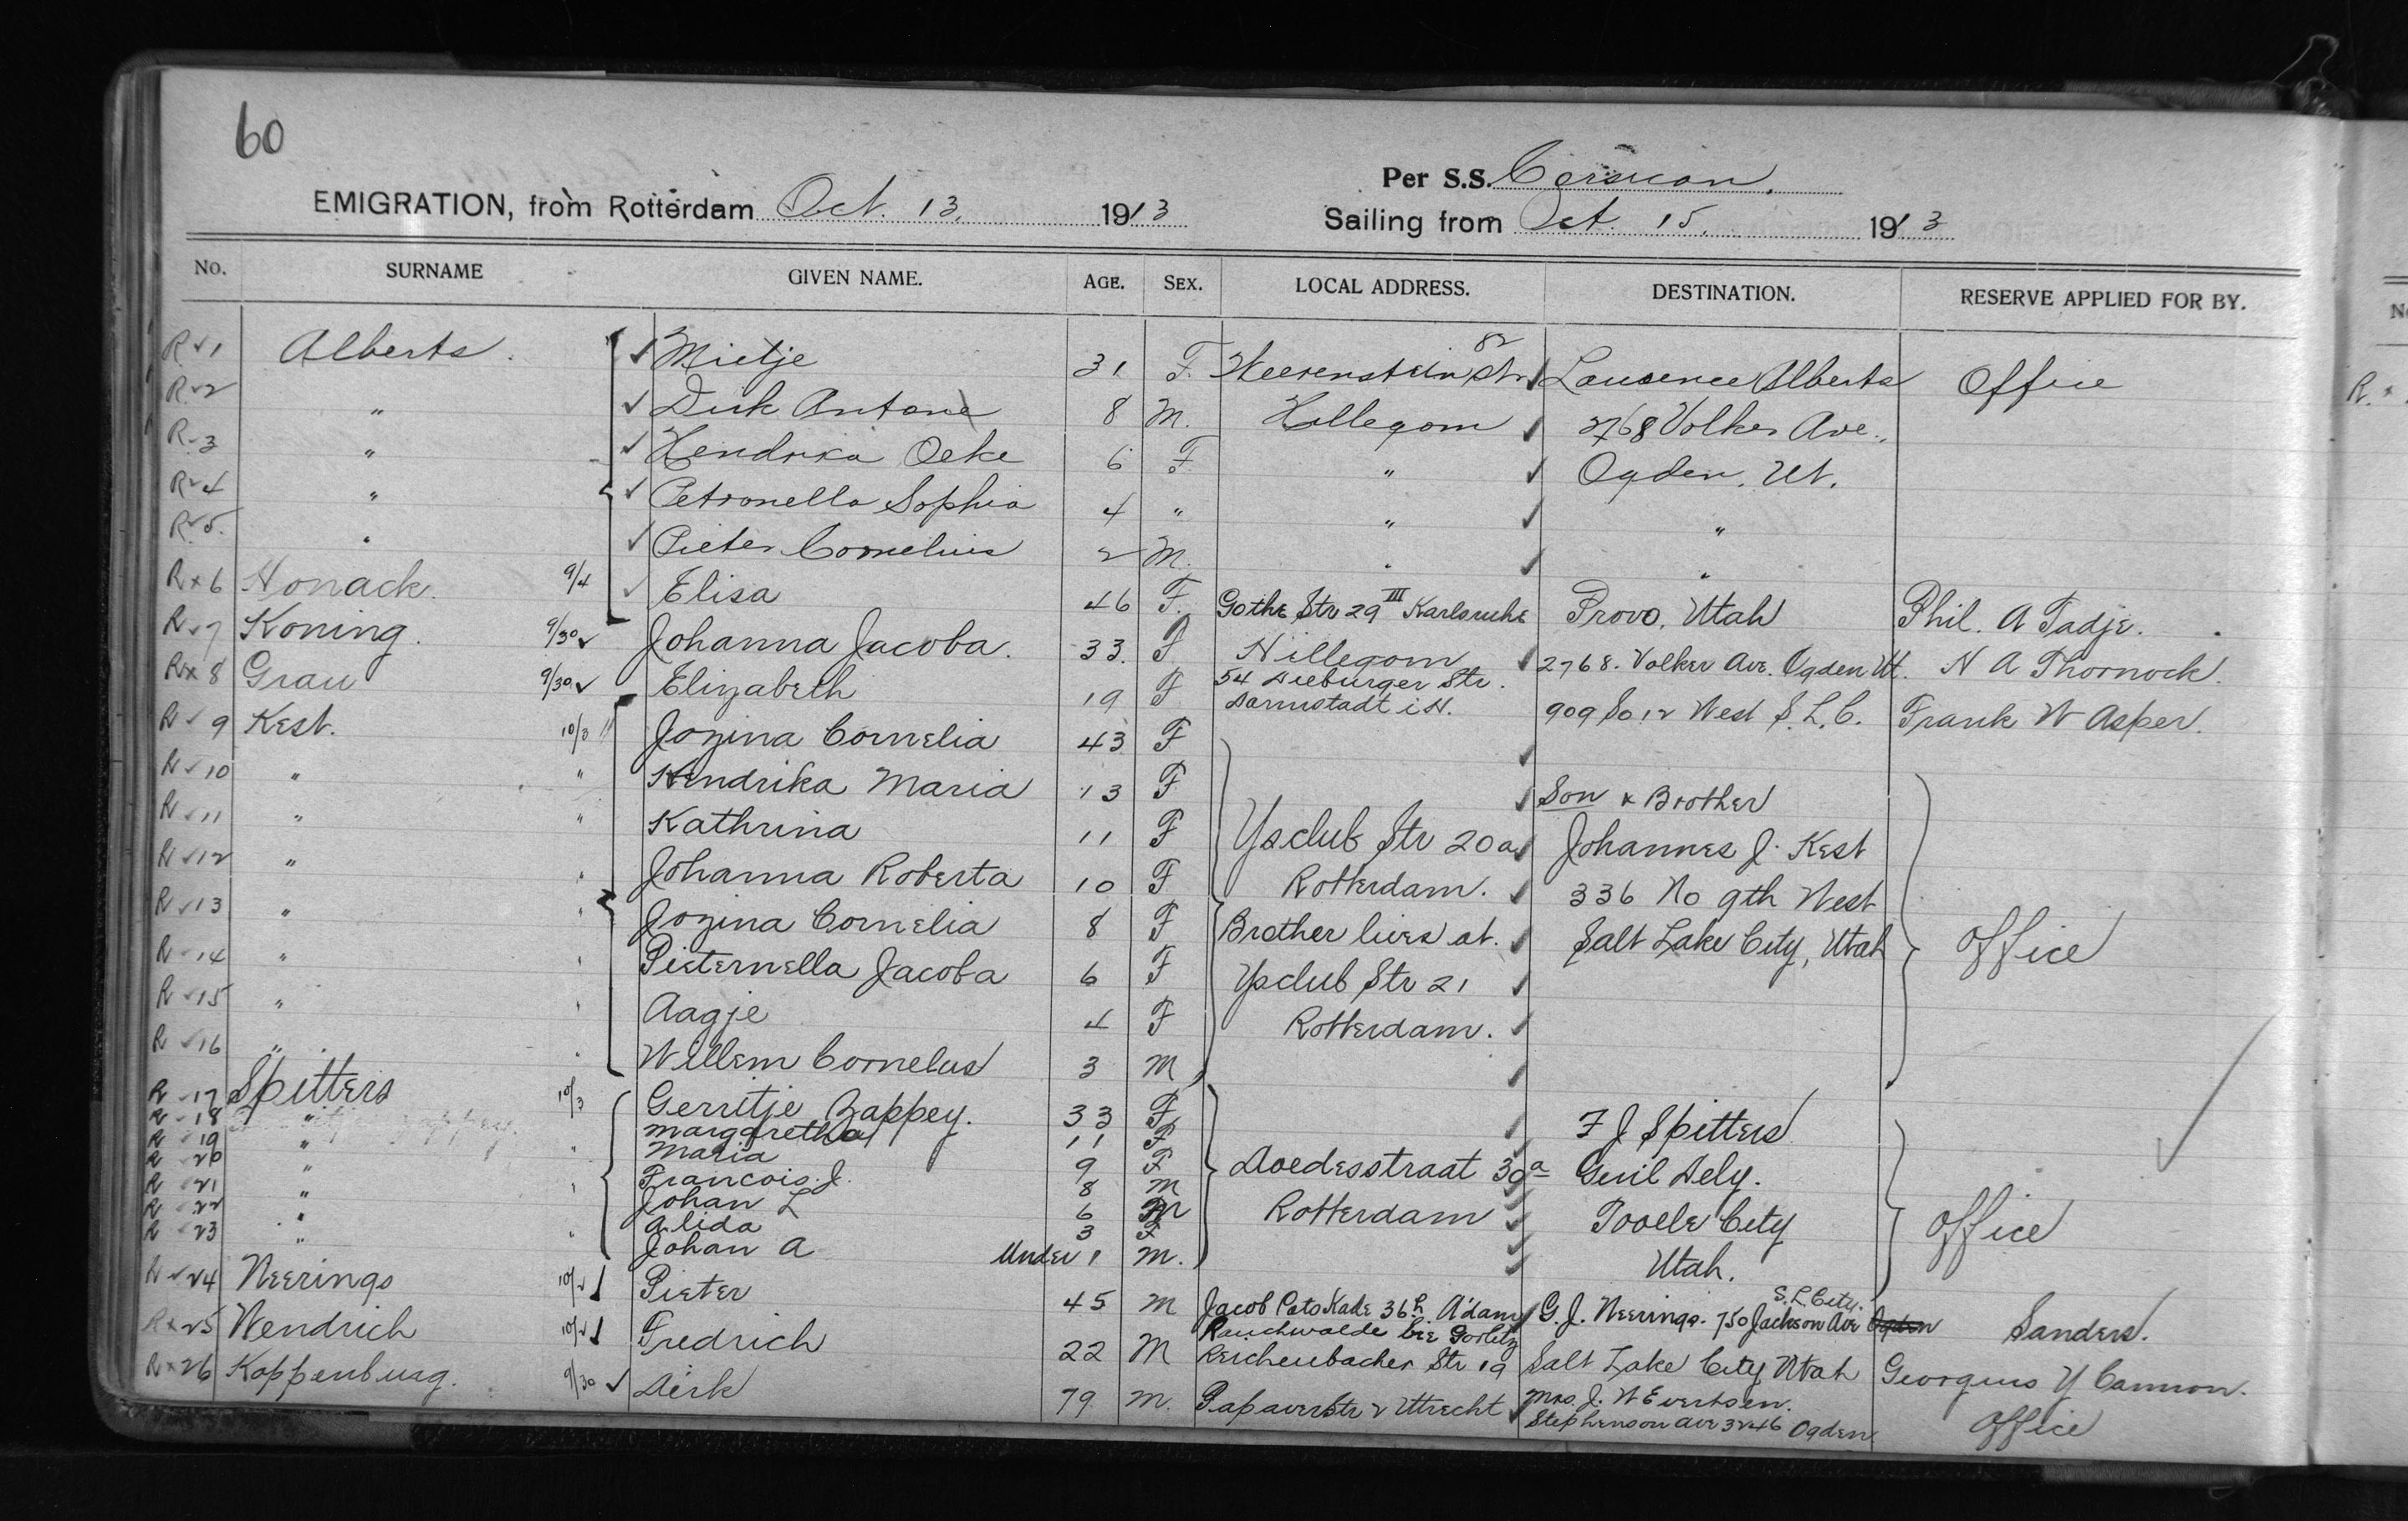 60
Per S.S. Corsican.
EMIGRATION, from Rotterdam Oct. 13, 1913
Sailing from Oct. 15, 1913
No. SURNAME GIVEN NAME. AGE. SEX. LOCAL ADDRESS. DESTINATION. RESERVE APPLIED FOR BY.
R ✓ 1 Alberts. ✓ Mietje 31 F. Weerenstein Str 82 ✓ Laurence Alberts Office
R ✓ 2 " ✓ Dirk Antone 8 M. Hillegom ✓ 2768 Volker Ave.,
R ✓ 3 " ✓ Hendrika Oeke 6 F. " ✓ Ogden, Ut.
R ✓ 4 " ✓ Petronella Sophia 4 " " ✓ "
R ✓ 5. " ✓ Pieter Cornelius 2 M. " ✓ "
R x 6 Nonack. 9/4 ✓ Elisa 46 F. Gothe Str 29 III Karlsruhe Provo, Utah Phil. A Tadje.
R ✓ 7 Koning. 9/30 ✓ Johanna Jacoba. 33. F Hillegom ✓ 2768. Volker Ave. Ogden Ut. N A Thornock.
R x 8 Grau 9/30 ✓ Elizabeth 19 F 54 Dieburger Str. Darmstadt i H. 909 So 12 West S. L. C. Frank W Asper.
R ✓ 9 Kest. 10/3 Jozina Cornelia 43 F ✓
R ✓ 10 " " Hendrika Maria 13 F ✓ Son & Brother
R ✓ 11 " " Kathrina 11 F Ysclub Str 20a ✓ Johannes J. Kest
R ✓ 12 " " Johanna Roberta 10 F Rotterdam. ✓ 336 No 9th West
R ✓ 13 " " Jozina Cornelia 8 F Brother lives at. ✓ Salt Lake City, Utah Office
R ✓ 14 " " Pieternella Jacoba 6 F Ysclub Str 21 ✓
R ✓ 15 " " Aagje 4 F Rotterdam. ✓
R ✓ 16 " " Willem Cornelus 3 M ✓
R ✓ 17 Spitters 10/3 Gerritje Zappey. 33 F ✓ F J Spitters
R ✓ 18 " Margaretha 11 F
R ✓ 19 " " Maria 9 F Doedesstraat 30a Genl Dely.
R ✓ 20 " Francois. J. 8 M
R ✓ 21 " " Johan L 6 M Rotterdam ✓ Tooele City Office
R ✓ 22 " Alida 3 F
R ✓ 23 " " Johan A Under 1 M. ✓ Utah.
R ✓ 24 Neerings 10/2 ✓ Pieter 45 M Jacob Cats Kade 36 h. A'dam G. J. Neerings. 750 Jackson Ave Ogden S.L. City. Sanders.
R x 25 Wendrich 10/2 ✓ Fredrich 22 M Rauschwalde bee Gorlitz Reichenbacher Str 19 Salt Lake City Utah Georguis Y Cannon.
R x 26 Koppenburg. 9/30 ✓ Dirk 79 M. Papaverstr 2 Utrecht ✓ Mrs. J. W Evertsen. Stephenson Ave 3246 Ogden Office